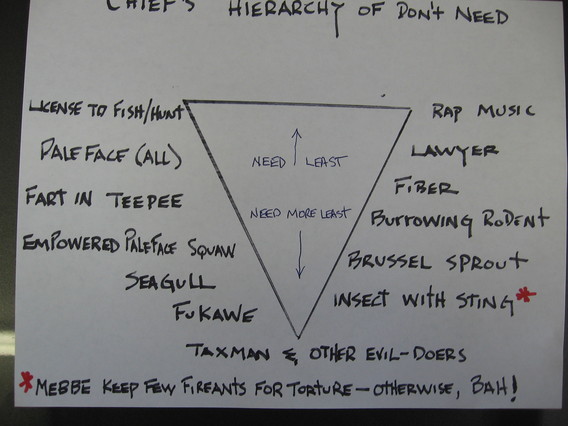 CHIEF'S HIERARCHY OF DON'T NEED
LICENSE TO FISH/HUNT
PALEFACE (ALL)
FART IN TEEPEE
EMPOWERED PALEFACE SQUAW
SEAGULL
FUKAWE
NEED LEAST
NEED MORE LEAST
RAP MUSIC
LAWYER
FIBER
BURROWING RODENT
BRUSSEL SPROUT
INSECT WITH STING*
TAXMAN & OTHER EVIL-DOERS
*MEBBE KEEP FEW FIREANTS FOR TORTURE — OTHERWISE, BAH!